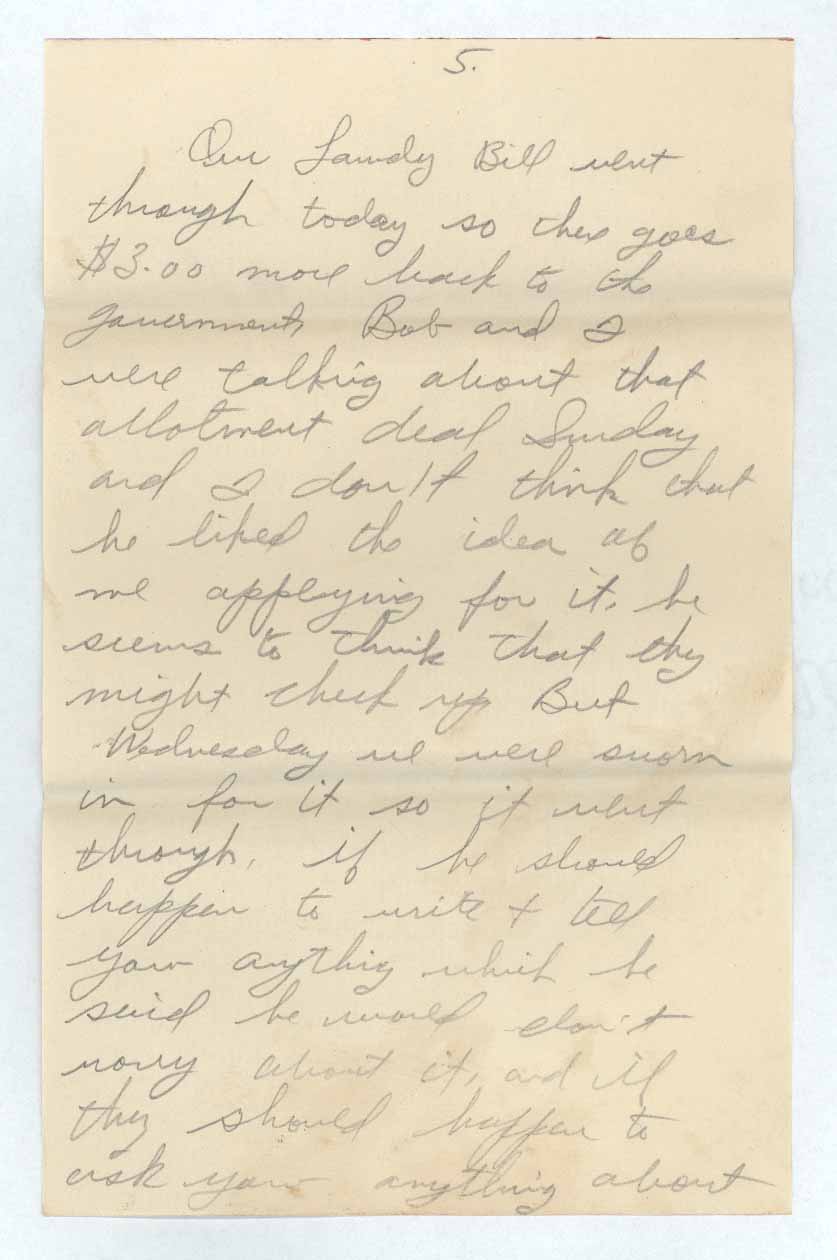 5.
Our Laundy Bill went
through today so there goes
$3.00 more back to the
government, Bob and I
were talking about that
allotment deal Sunday
and I don't think that
he liked the idea of
me applying for it, he
seems to think that they
might check up But
Wednesday we were sworn
in for it so it went
through, if he should
happen to write + tell
you anything which he
said he would don't
worry about it, and if
they should happen to
ask you anything about